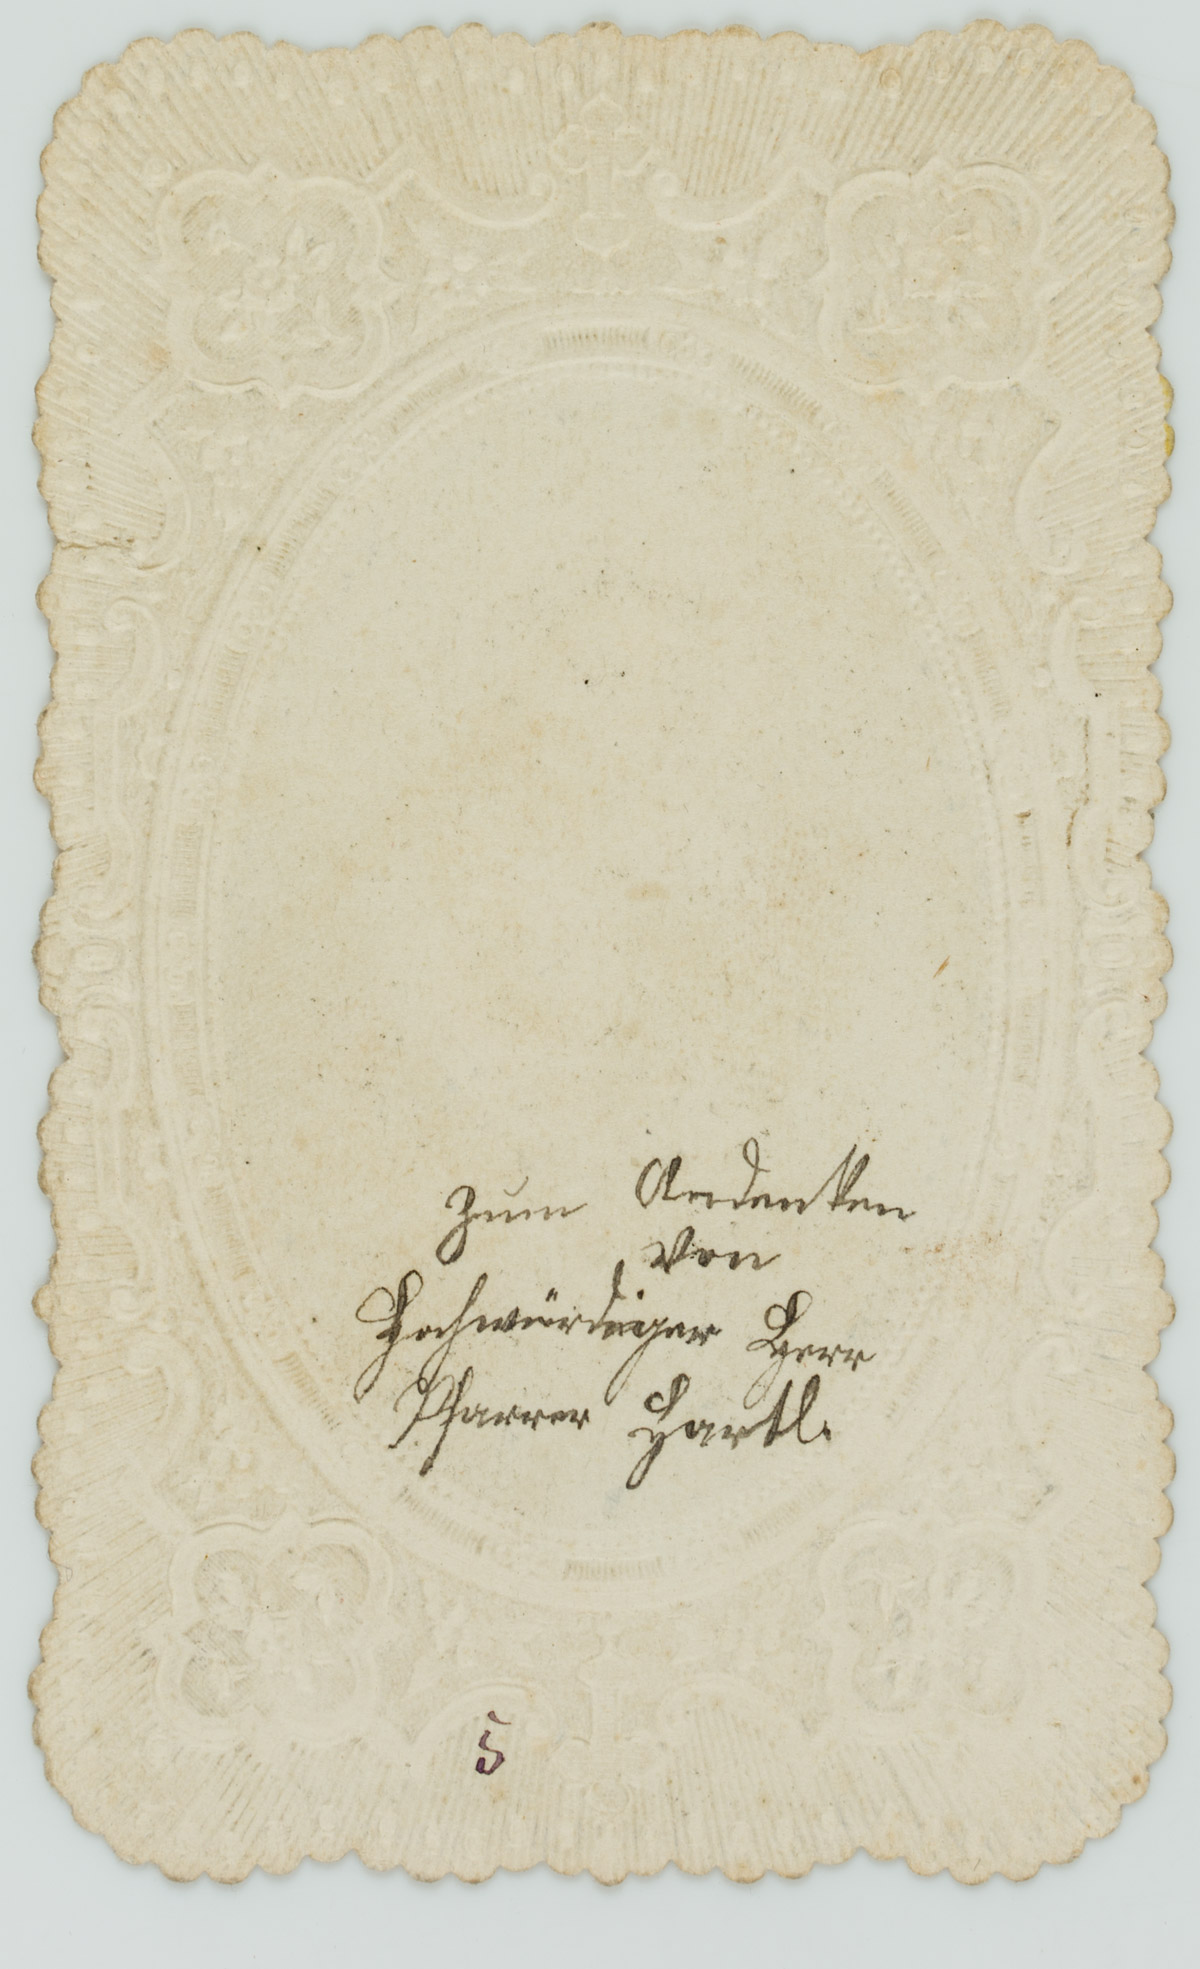 Zum Andenken
von
Hochwürdiger Herr
Pfarrer Hartl.
5